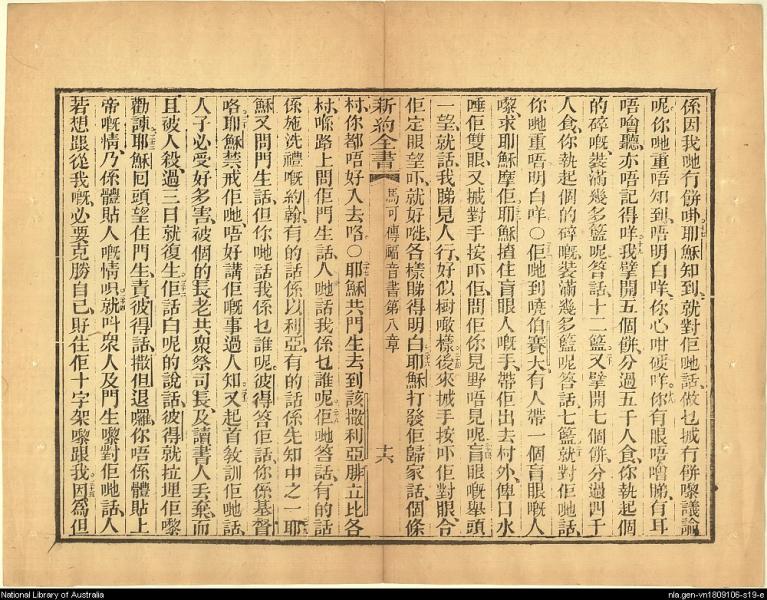 係因我哋有餅㖞耶穌知到就對佢哋話做乜掝冇餅嚟議論
呢你哋重唔知到唔明白咩你心咁硬咩你有眼唔噲睇有耳
唔噲聽亦唔記得咩我擘開五個餅分過五千人食你執起個
的碎嘅裝滿幾多籃呢答話十二籃又擘開七個餅分過四千
人食你執起個的碎嘅裝滿幾多籃呢答話七籃就對佢哋話
你哋重唔明白咩○佢哋到曉伯賽大有人帶一個盲眼嘅人
嚟求耶穌摩佢耶穌揸住盲眼人嘅手帶佢出去村外俾口水
唾佢雙眼又掝對手按吓佢問佢你見野唔見呢盲眼嘅舉頭
一望就話我睇見人行好似樹噉樣後來掝手按吓佢對眼合
佢定眼望吓就好咯各樣睇得明白耶穌打發佢歸家話個條
新約全書
馬可傳福音書第八章
十六
村你都唔好入去咯○耶穌共門生去到該撒利亞腓立比各
村喺路上問佢門生話人哋話我係乜誰呢佢哋答話有的話
係施洗禮嘅約翰有的話係以利亞有的話係先知中之一耶
穌又問門生話但你哋話我係乜誰呢彼得答佢話你係基督
咯耶穌禁戒佢哋唔好講佢嘅事過人知又起首教訓佢哋話
人子必受好多害被個的長老共衆祭司長及讀書人丟棄而
且被人殺過三日就復生佢話白呢的說話彼得就拉埋佢嚟
勸諫耶穌囘頭望住門生責彼得話撒但退囉你唔係體貼上
帝嘅情乃係體貼人嘅情呮就叫衆人及門生嚟對佢哋話人
若想跟從我嘅必要克勝自己㞗住佢十字架嚟跟我因爲但